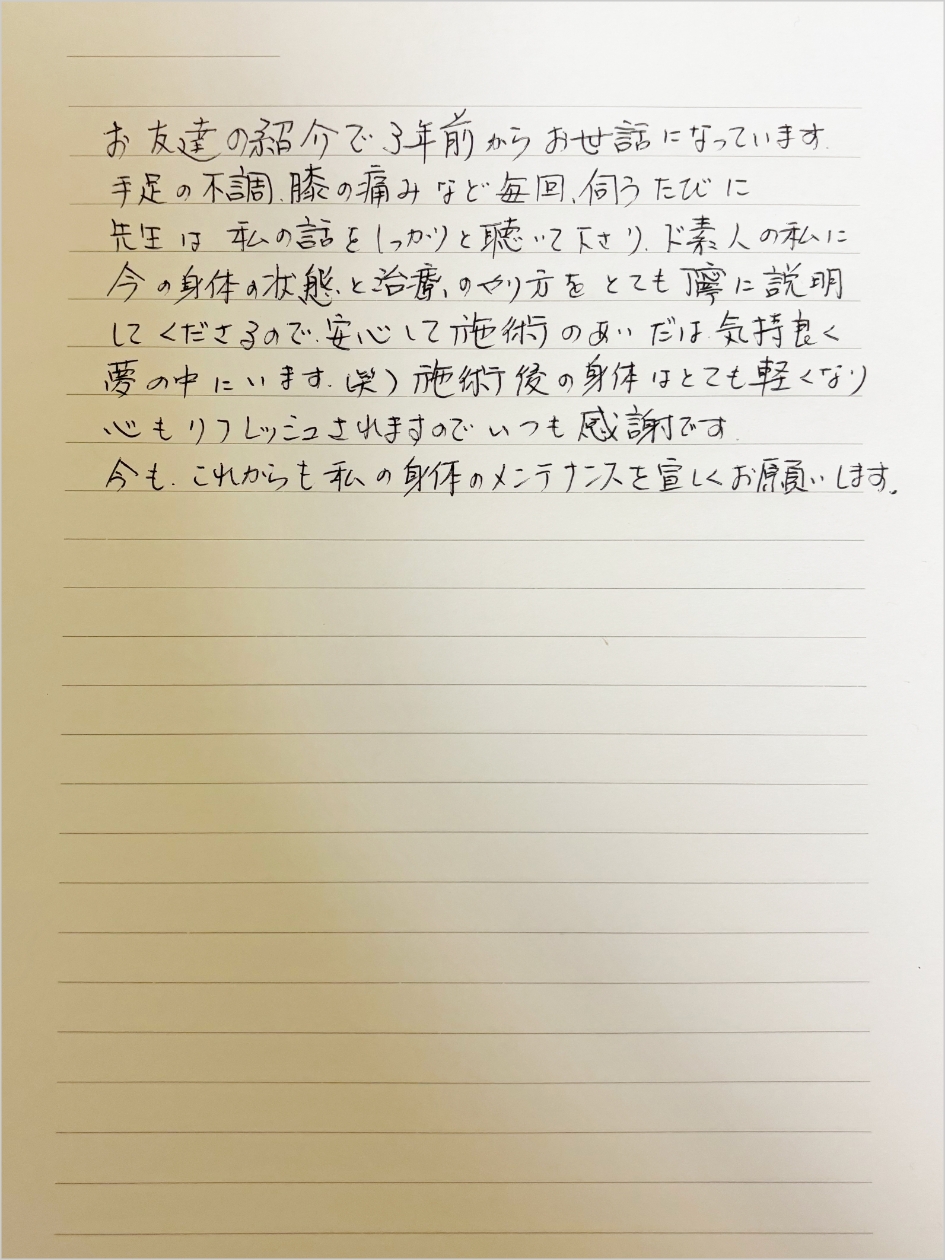 お友達の紹介で3年前からお世話になっています.
手足の不調、膝の痛みなど毎回、伺うたびに
先生は私の話をしっかりと聴いて下さり、ド素人の私に
今の身体の状態、と治療、のやり方をとても寧に説明
してくださるので、安心して施術のあいだは、気持良く
夢の中にいます.(笑)施術後の身体はとても軽くなり
心もリフレッシュされますのでいつも感謝です.
今も、これからも私の身体のメンテナンスを宜しくお願いします。